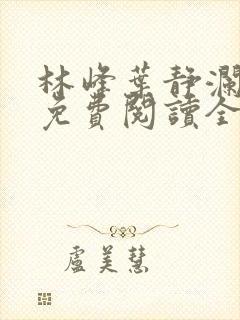 林峰葉靜瀾
免費閱讀全
盧美慧